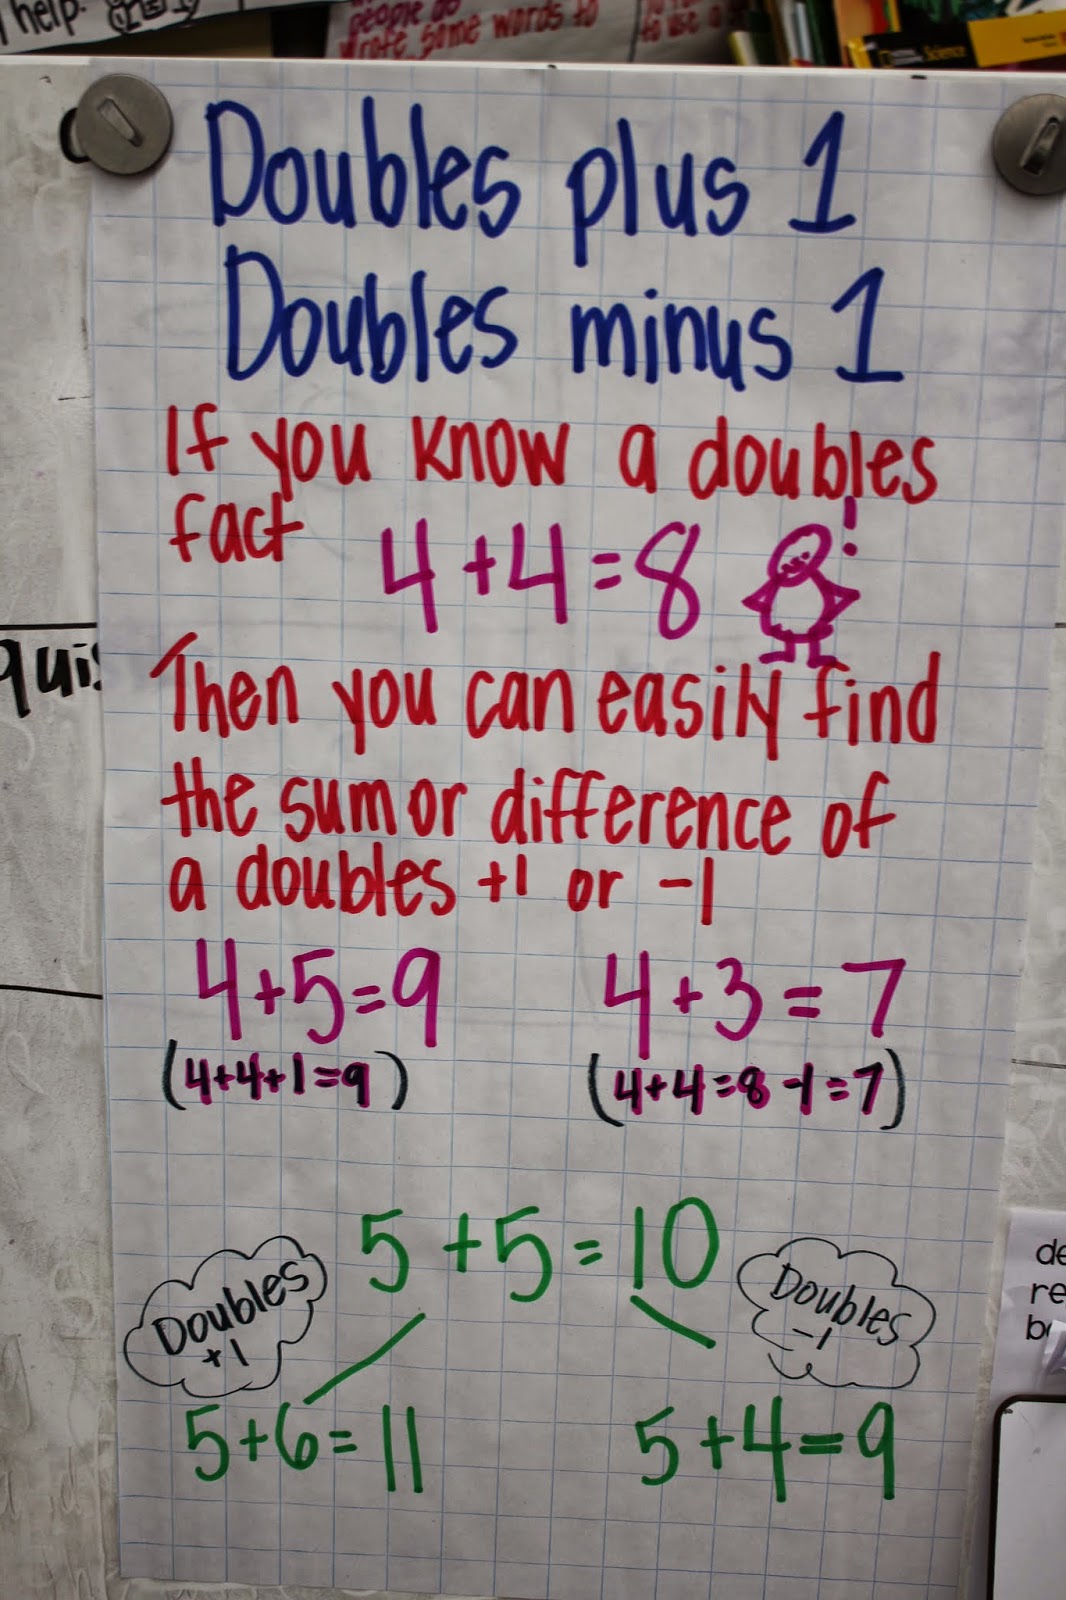 help.
people do
wrote some words to
to use a
Science
Doubles plus 1
Doubles minus 1
If you know a doubles
fact 4+4=8 !
Then you can easily find
the sum or difference of
a doubles +1 or -1
4+5=9 4+3=7
(4+4+1=9) (4+4=8-1=7)
5+5=10
Doubles
+1
Doubles
-1
5+6=11 5+4=9
quis
de
re
b